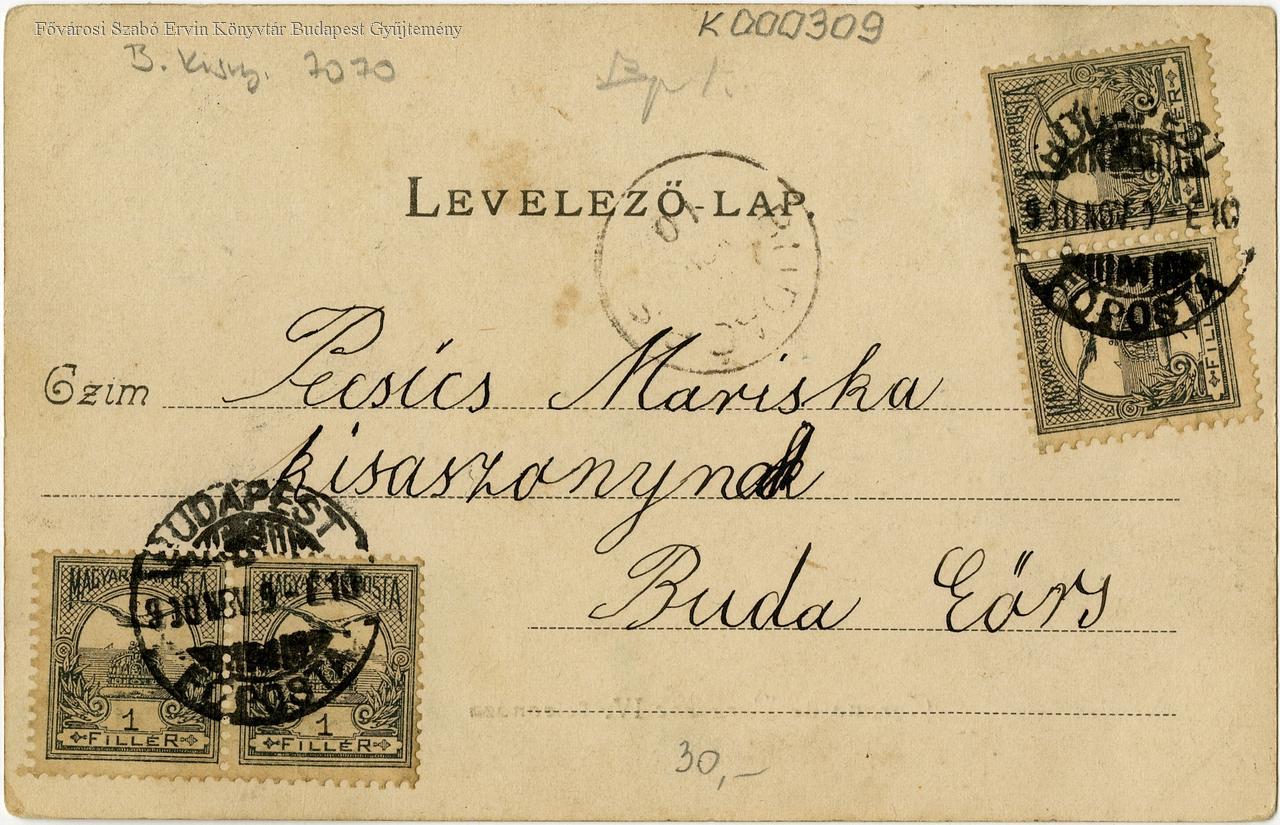 Fővárosi Szabó Ervin Könyvtár Budapest Gyűjtemény
K000309
B. 7070
Bpt.
LEVELEZŐ-LAP.
MAGY. KIR. POSTA
FILLÉR
MAGY. KIR. POSTA
FILLÉR
FŐPOSTA
Czim Pecsics Mariska
kisaszonynak
Buda Eörs
BUDAPEST
FŐPOSTA
MAGYAR KIR. POSTA
1
FILLÉR
MAGYAR KIR. POSTA
1
FILLÉR
30,-